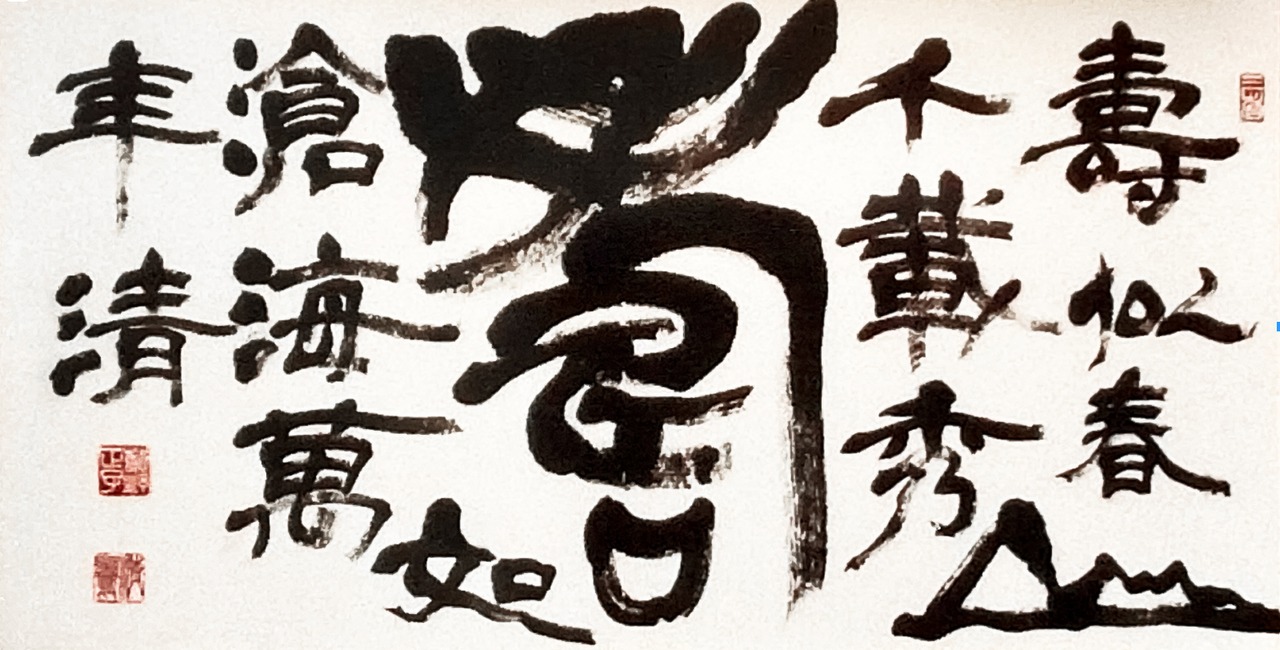 壽似春山
千載秀
壽
如
滄海萬
年清